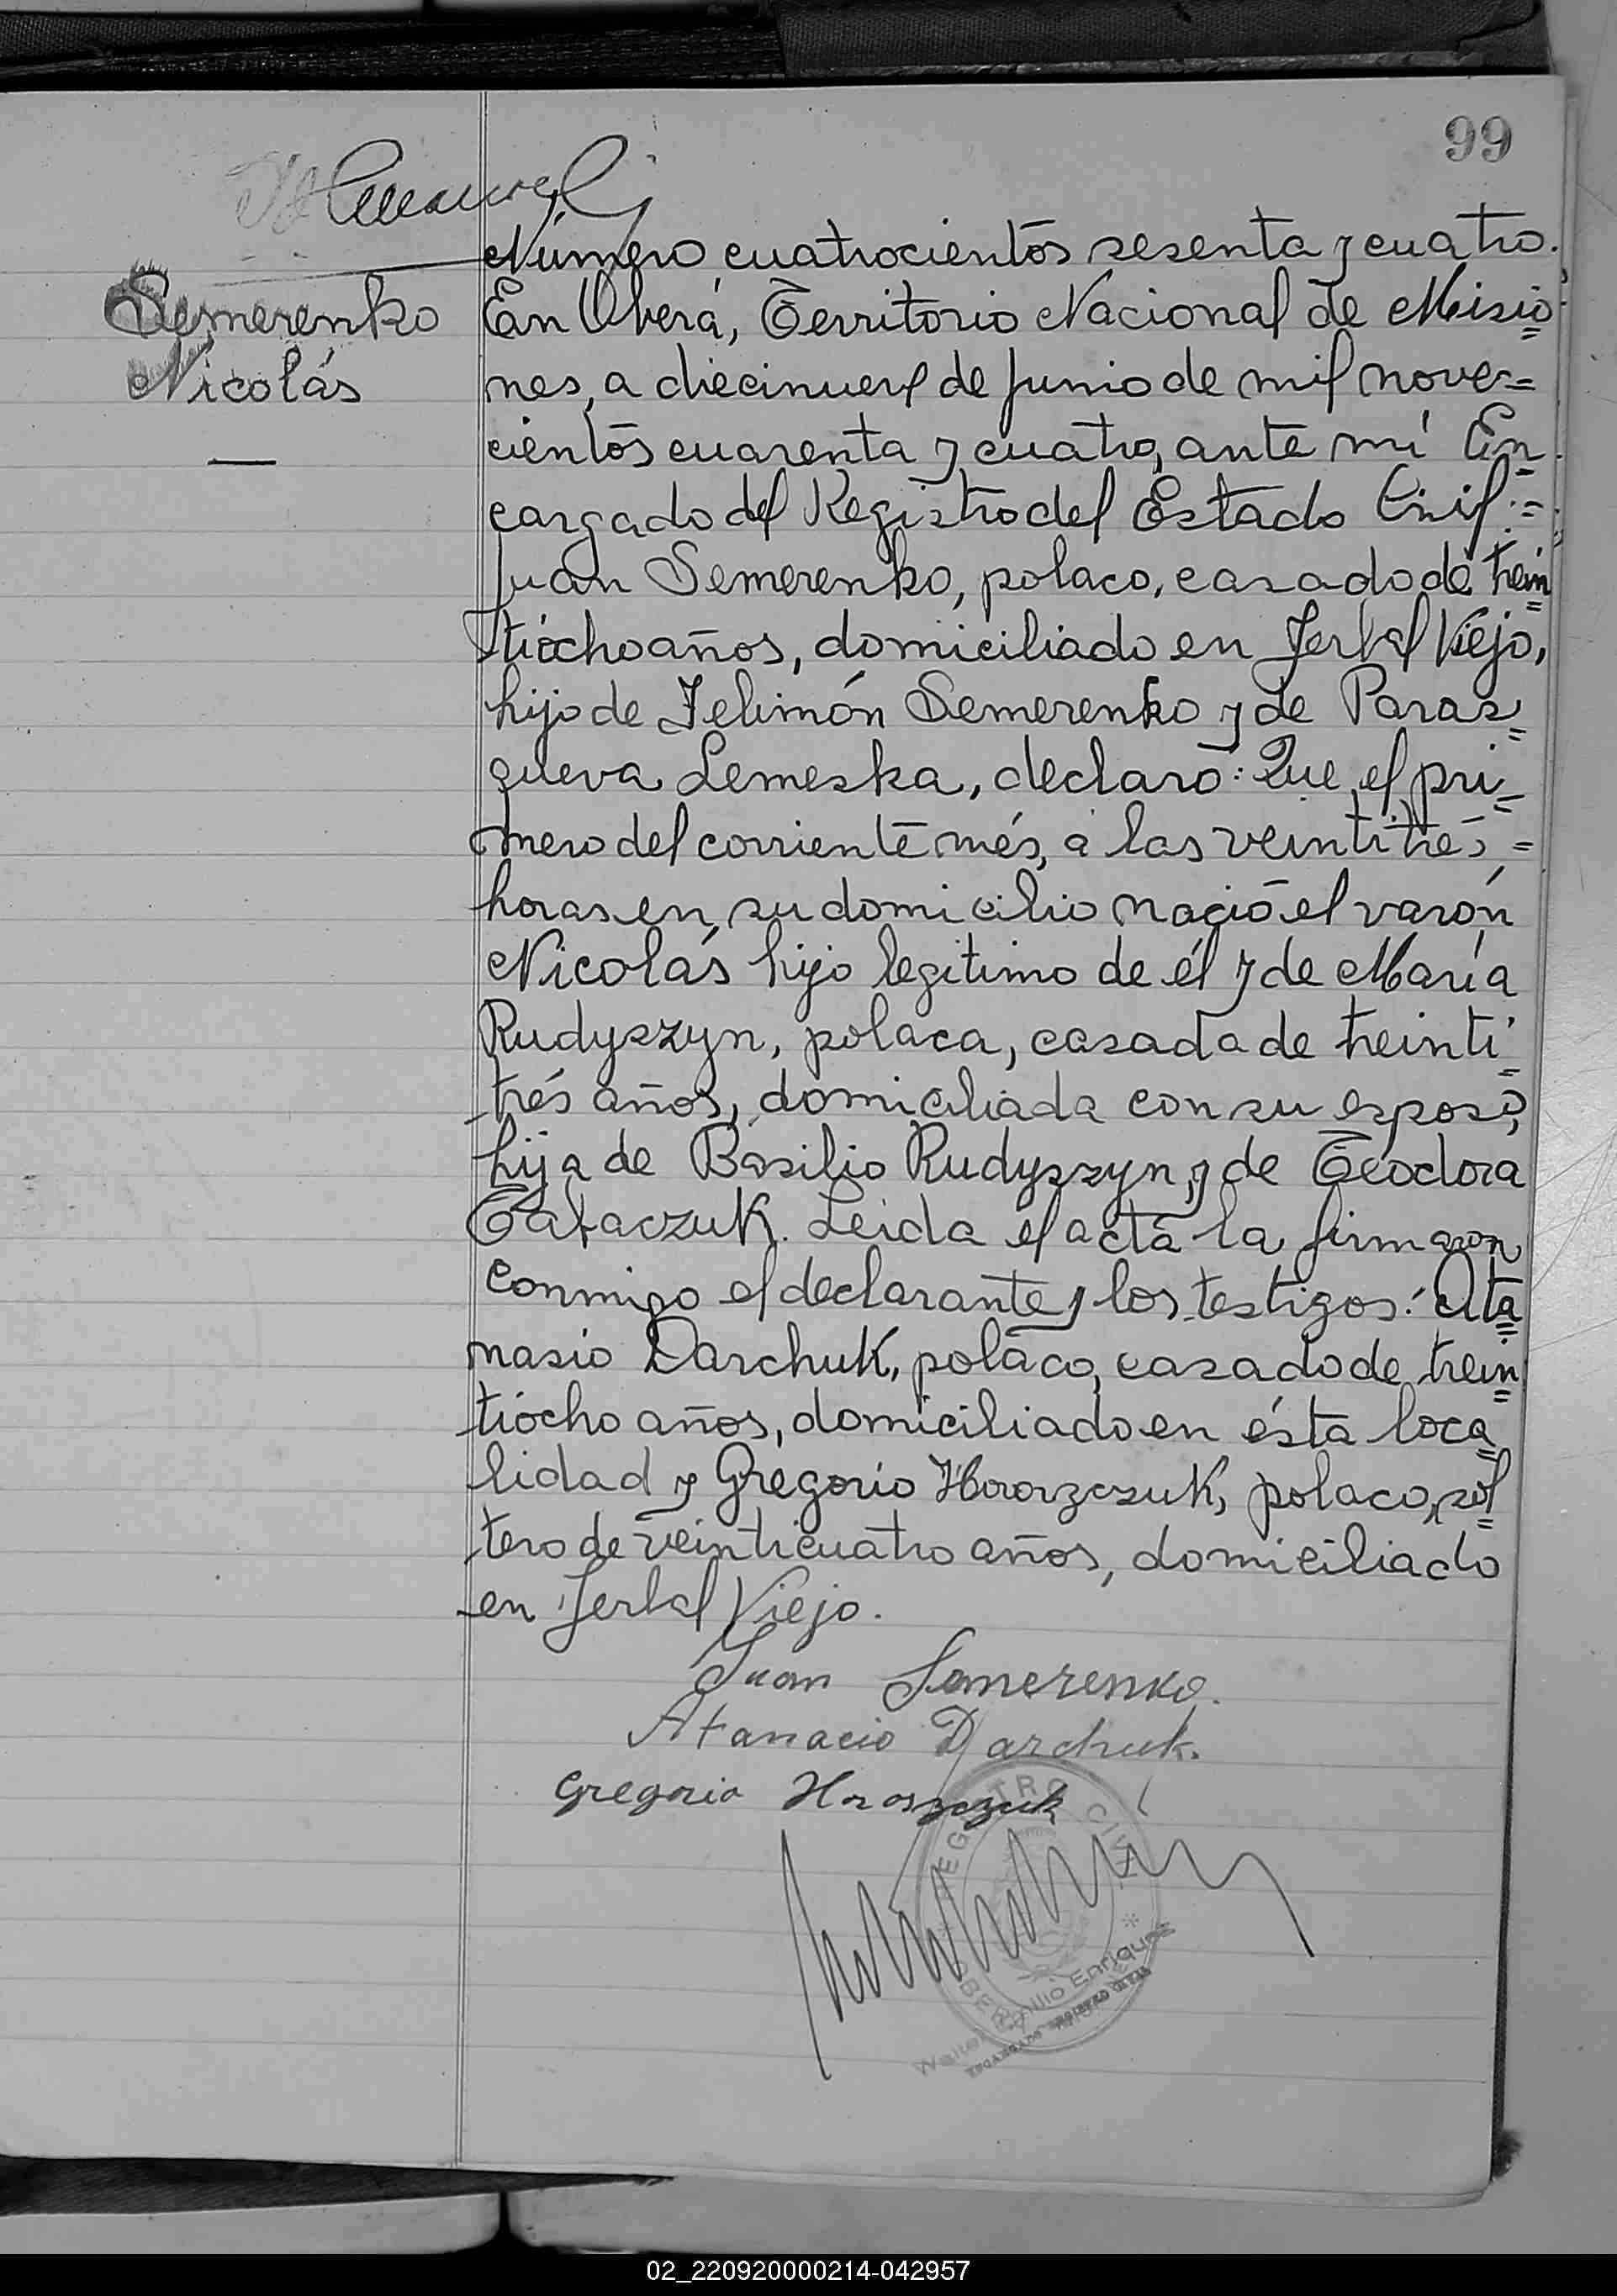 99
Número cuatrocientos sesenta y cuatro.
Semerenko
Nicolás
En Oberá, Territorio Nacional de Misio=
nes, a diecinueve de Junio de mil nove=
cientos cuarenta y cuatro, ante mí En=
cargado del Registro del Estado Civil:=
Juan Semerenko, polaco, casado de trein=
tiocho años, domiciliado en Yerbal Viejo,
hijo de Felimón Semerenko y de Paras=
queva Lemeska, declaró: Que el pri=
mero del corriente més, a las veintitrés =
horas en su domicilio nació el varón
Nicolás hijo legitimo de él y de María
Rudyszyn, polaca, casada de treinti=
trés años, domiciliada con su esposo,
hija de Basilio Rudyszyn y de Teodora
Leida el acta la firmaron
conmigo el declarante y los testigos: Ata=
nasio Darchuk, polaco, casado de trein=
tiocho años, domiciliado en ésta loca=
lidad y Gregorio polaco, sol=
tero de veinticuatro años, domiciliado
en Yerbal Viejo.
Juan Semerenko.
Atanacio Darchuk.
Gregorio Hroszczuk
REGISTRO CIVIL
OBERÁ
Walter Emilio Enriquez
ENCARGADO REGISTRO CIVIL
02_220920000214-042957